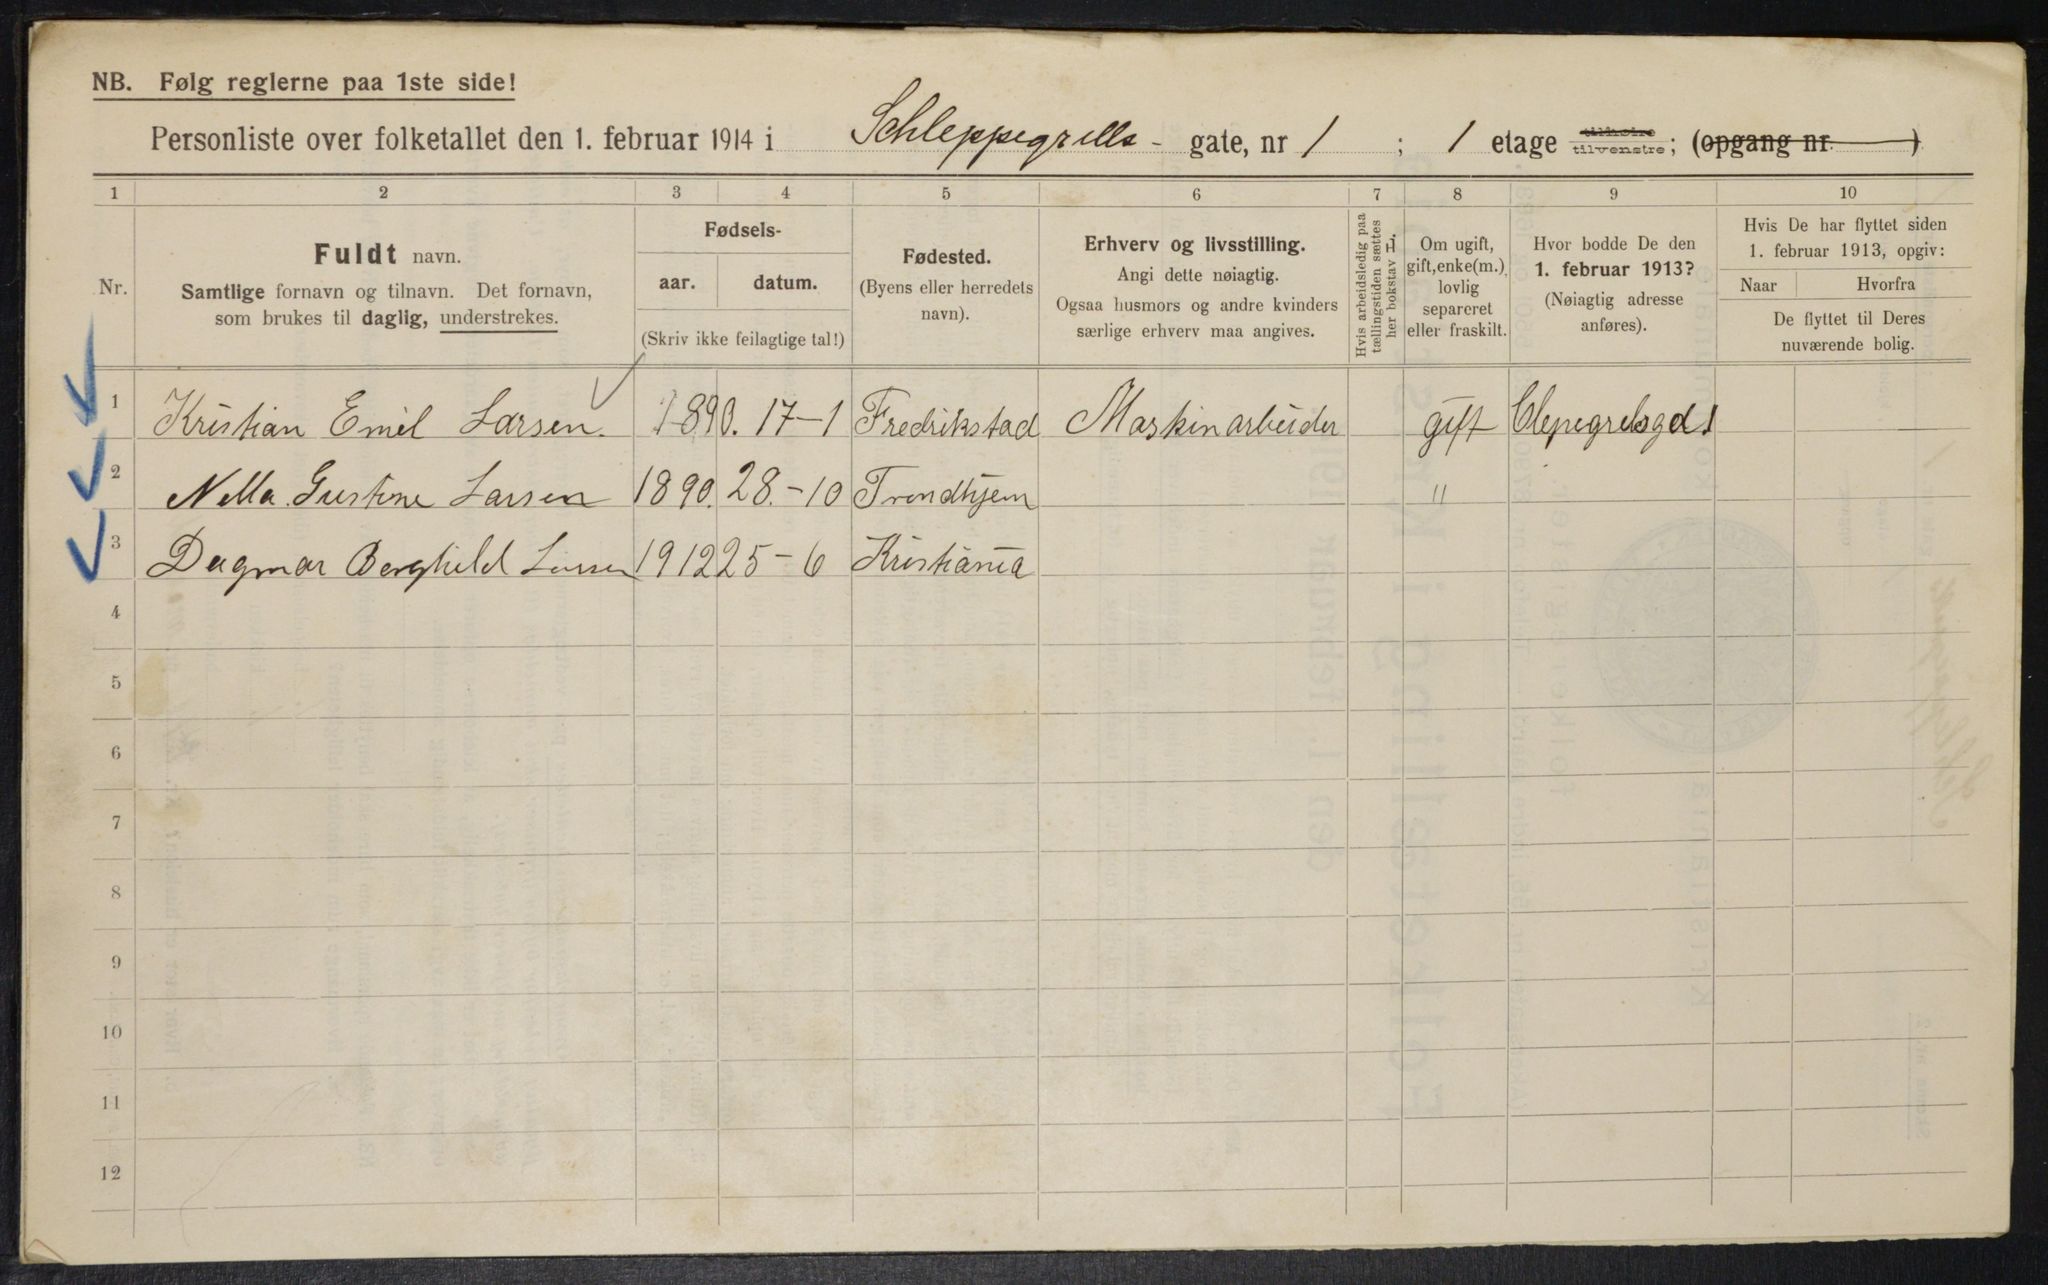 NB. Følg reglerne paa 1ste side!
Personliste over folketallet den 1. februar 1914 i Schleppegrells - gate, nr 1 ; 1 etage tilhøire tilvenstre; (opgang nr. )
1 2 3 4 5 6 7 8 9 10
Nr.
Fuldt navn.
Samtlige fornavn og tilnavn. Det fornavn,
som brukes til daglig, understrekes.
Fødsels-
aar. datum.
(Skriv ikke feilagtige tal!)
Fødested.
(Byens eller herredets
navn).
Erhverv og livsstilling.
Angi dette nøiagtig.
Ogsaa husmors og andre kvinders
særlige erhverv maa angives.
Hvis arbeidsledig paa
tællingstiden sættes
her bokstav L.
Om ugift,
gift, enke(m.),
lovlig
separeret
eller fraskilt.
Hvor bodde De den
1. februar 1913?
(Nøiagtig adresse
anføres).
Hvis De har flyttet siden
1. februar 1913, opgiv:
Naar Hvorfra
De flyttet til Deres
nuværende bolig.
1 Kristian Emil Larsen. 1890. 17-1 Fredrikstad Maskinarbeider gift Clepegrelsgd 1
2 Nella Gustine Larsen 1890. 28.-10 Trondhjem "
3 Dagmar Borghild Larsen 1912 25-6 Kristiania
4
5
6
7
8
9
10
11
12